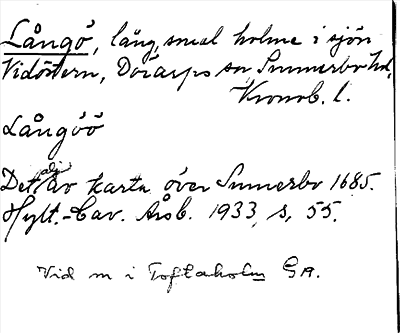 Långö, lång, smal holme i sjön
Vidöstern, Dörarps sn Sunnerbo hd,
Kronob. l.
Långöö
Detalj av karta över Sunnerbo 1685.
Hylt.-Cav. Årsb. 1933, s. 55.
Vid m i Toftaholm GA.